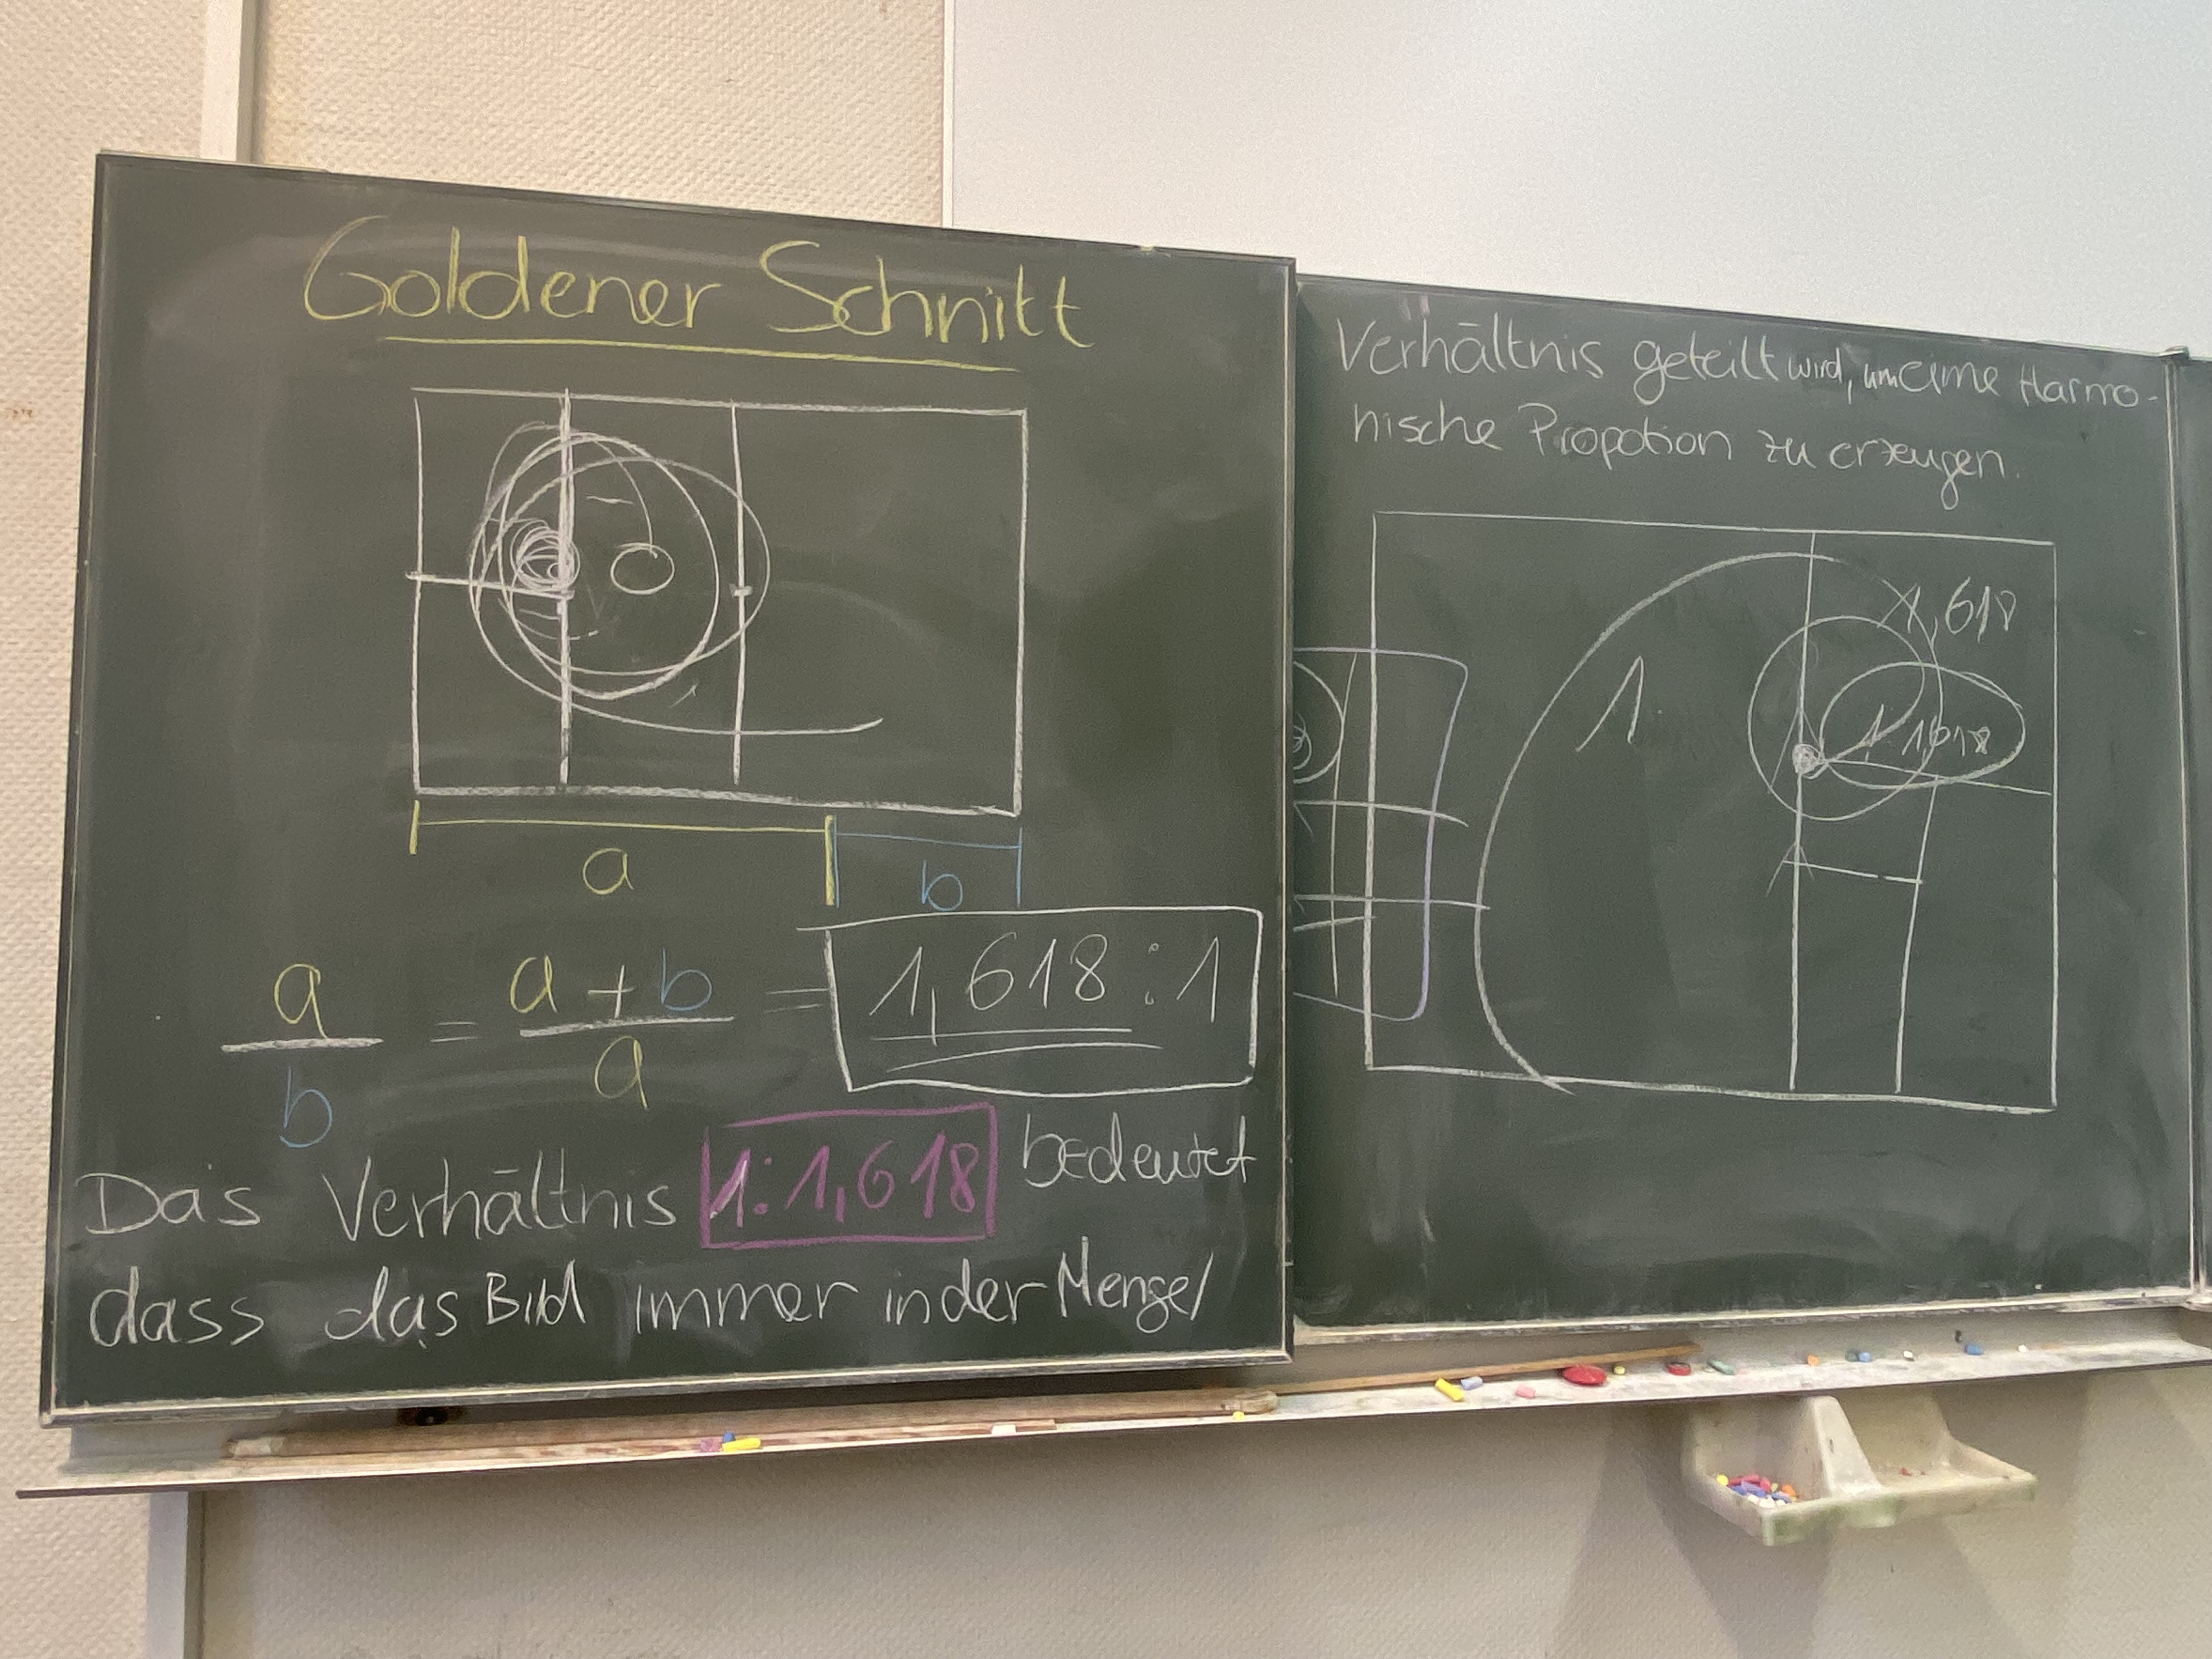 Goldener Schnitt
a
b
a
b
=
a + b
a
= 1,618 : 1
Das Verhältnis 1:1,618 bedeutet
dass das Bild immer in der Menge/
Verhältnis geteilt wird, um eine Harmo-
nische Propotion zu erzeugen.
1,618
1
1:1,618